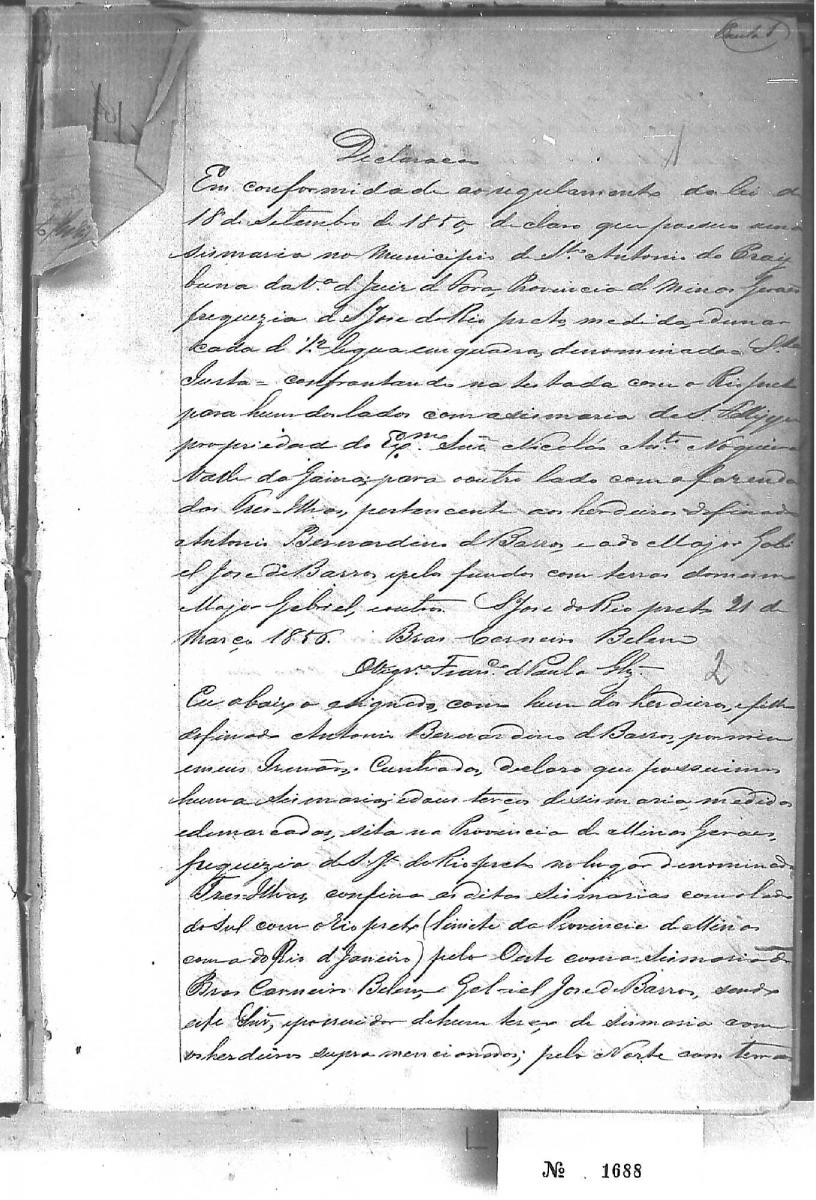 Paula
1
Declaração
Em conformidade ao regulamento da lei de
18 de Setembro de 1850, declaro que possuo uma
sismaria no Municipio de Sto. Antonio do Paray
buna da Va. d Juiz d Fora, Provincia d Minas Geraes
freguezia d S José do Rio preto, medida, e demar
cada d 1/2 legua em quadra, denominada = Sta
Justa = confrontando na testada com o Rio preto
para hum dos lados com a sismaria de S. Fellippe
propriedad do Exmo Snr. Nicoláo Anto. Nogueira
Valle da Gama, para o outro lado com a fazenda
das Tres-Ilhas, pertencente aos herdeiros do finado
Antonio Bernardino d Barros, e ao do Major Gabri
el José de Barros, e pelo fundos com terras do mesmo
Major Gabriel, e outros. S José do Rio preto 21 de
Março 1856. Bras Carneiro Belem
O Vigro. Franco. d Paula
2
Eu abaixo asignado, como hum dos herdeiros, e filho
do finado Antonio Bernardino d Barros, por mim
e meus Irmãos, e Cunhados, declaro que possuimos
huma Sismaria, e dous terços de sismaria, medidos
e demarcadas, sita na Provincia de Minas Geraes,
freguezia de S. Je. do Rio preto no lugar denominado
Tres Ilhas, confina as ditas sismarias com o lado
do Sul com o Rio preto (limite da Provincia d Minas
com a do Rio d Janeiro) pelo Oeste com a Sismaria de
Bras Carneiro Belem, e Gabriel José de Barros, sendo
este Snr. o possuidor de hum terço de sismaria com
os herdeiros supra mencionados; pelo Norte com terras
Nº 1688